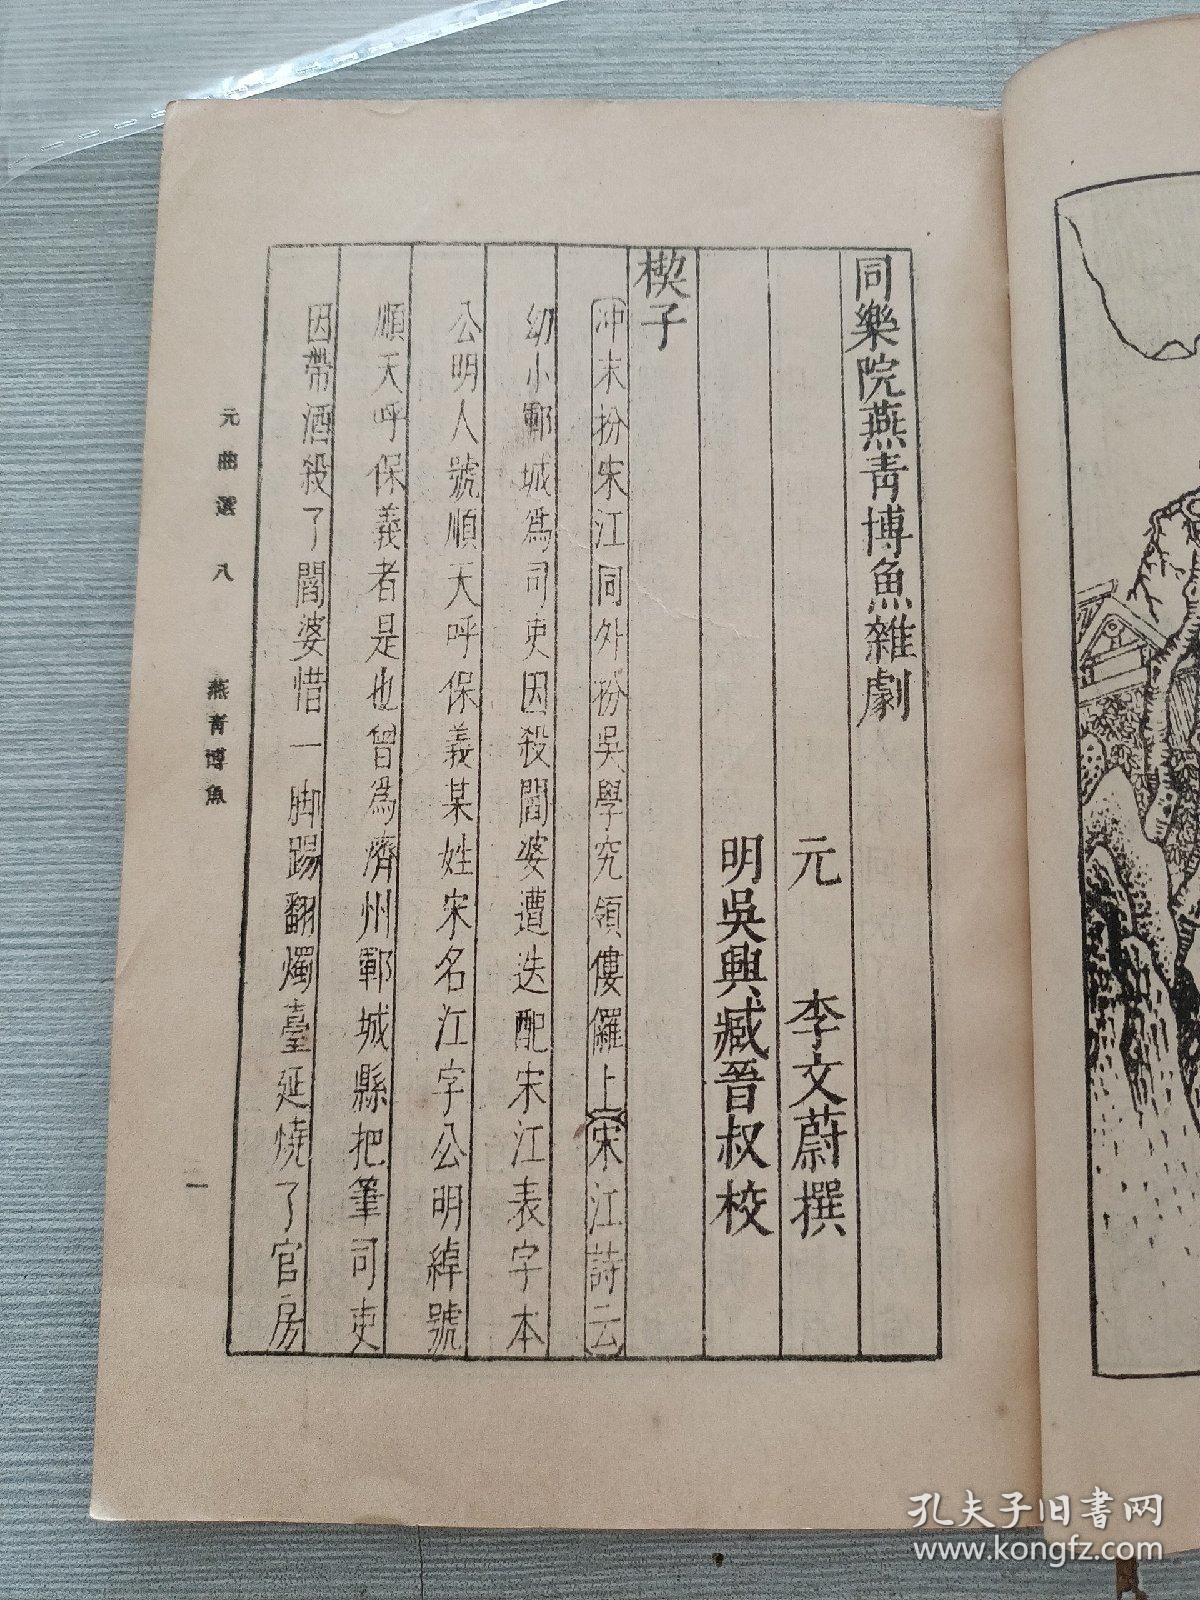 同樂院燕青博魚雜劇
元 李文蔚撰
明吳興臧晉叔校
楔子
冲末扮宋江同外扮吳學究領僂儸上宋江詩云
幼小鄆城爲司吏因殺閻婆遭迭配宋江表字本
公明人號順天呼保義某姓宋名江字公明綽號
順天呼保義者是也曾爲濟州鄆城縣把筆司吏
因帶酒殺了閻婆惜一脚踢翻燭臺延燒了官房
元曲選 八 燕青博魚 一
孔夫子旧書网
www.kongfz.com